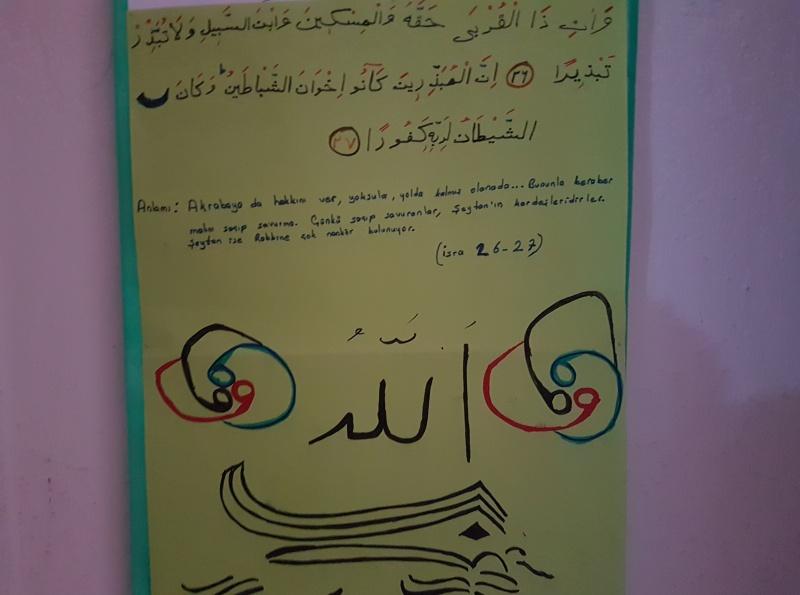 وَاٰتِ ذَا الْقُرْبٰى حَقَّهُ وَالْمِسْكِينَ وَابْنَ السَّبِيلِ وَلَا تُبَذِّرْ
تَبْذِيرًا ٢٦ اِنَّ الْمُبَذِّرِينَ كَانُوا اِخْوَانَ الشَّيَاطِينِ وَكَانَ
الشَّيْطَانُ لِرَبِّهِ كَفُورًا ٢٧
Anlamı: Akrabaya da hakkını ver, yoksula, yolda kalmış olanada... Bununla beraber
malını saçıp savurma. Çünkü saçıp savuranlar, Şeytan'ın kardeşleridirler.
Şeytan ise Rabbine çok nankör bulunuyor.
(isra 26-27)
و و و اللّٰهُ و و و